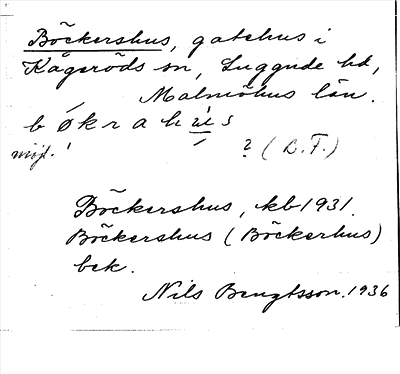 Böckershus, gatehus i
Kågeröds sn, Luggude hd,
Malmöhus län.
b ø k r a h u s
möjl. ? (L.F.)
Böckershus, kb 1931.
Böckershus (Böckerhus)
bek.
Nils Bengtsson. 1936